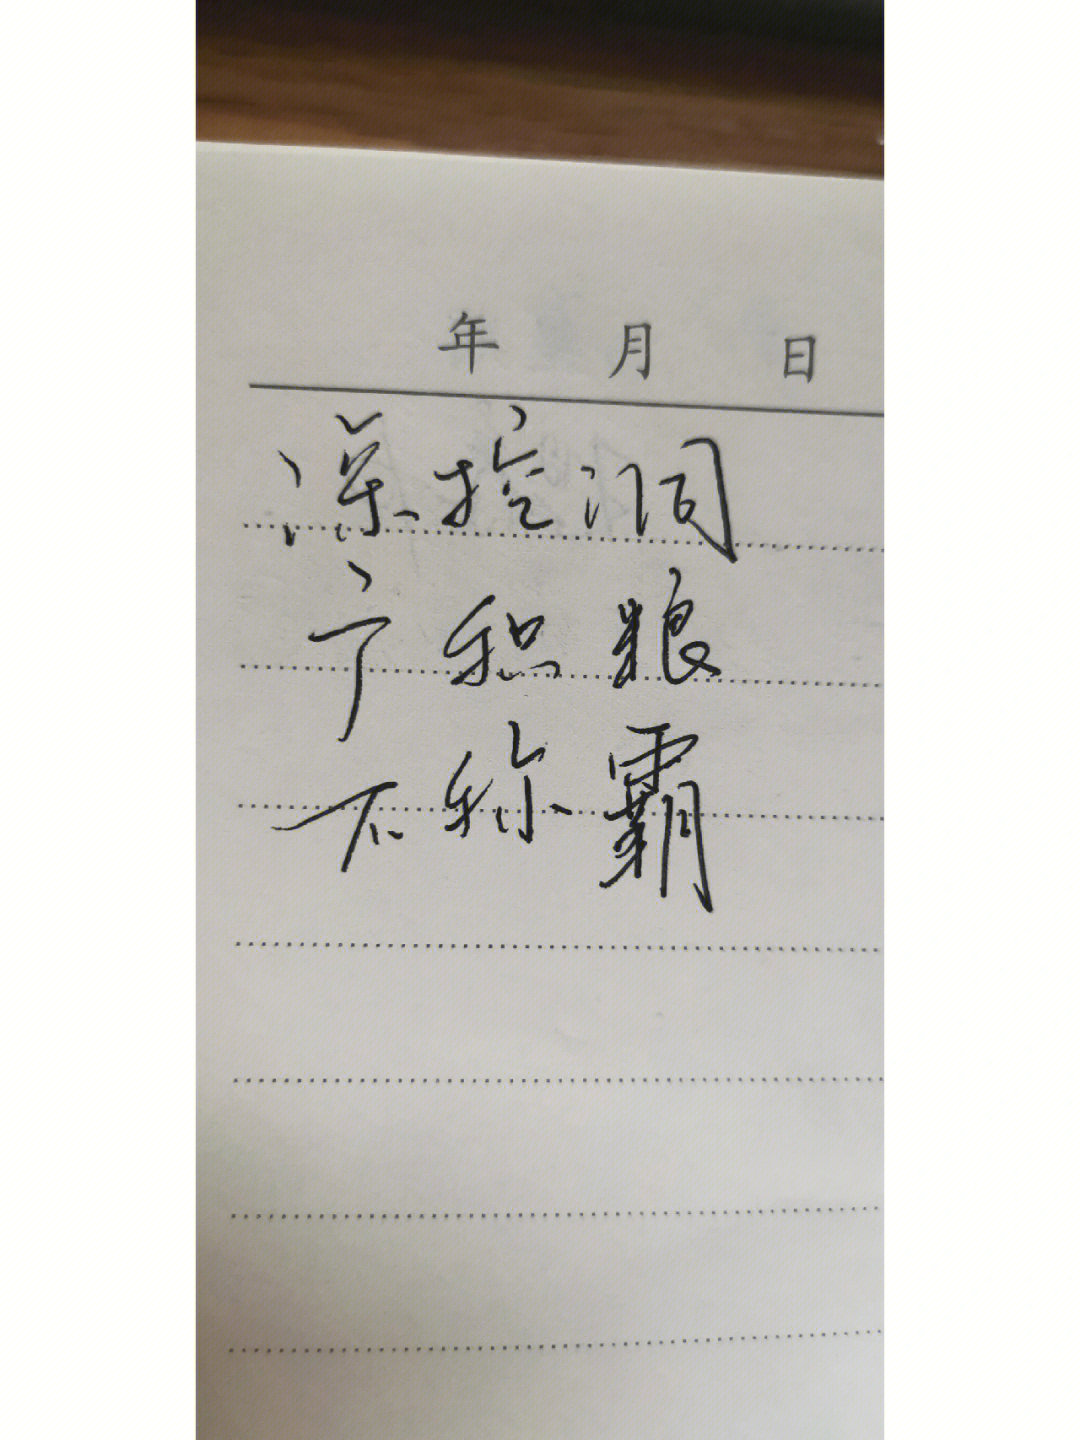 年 月 日
深挖洞
广积粮
不称霸